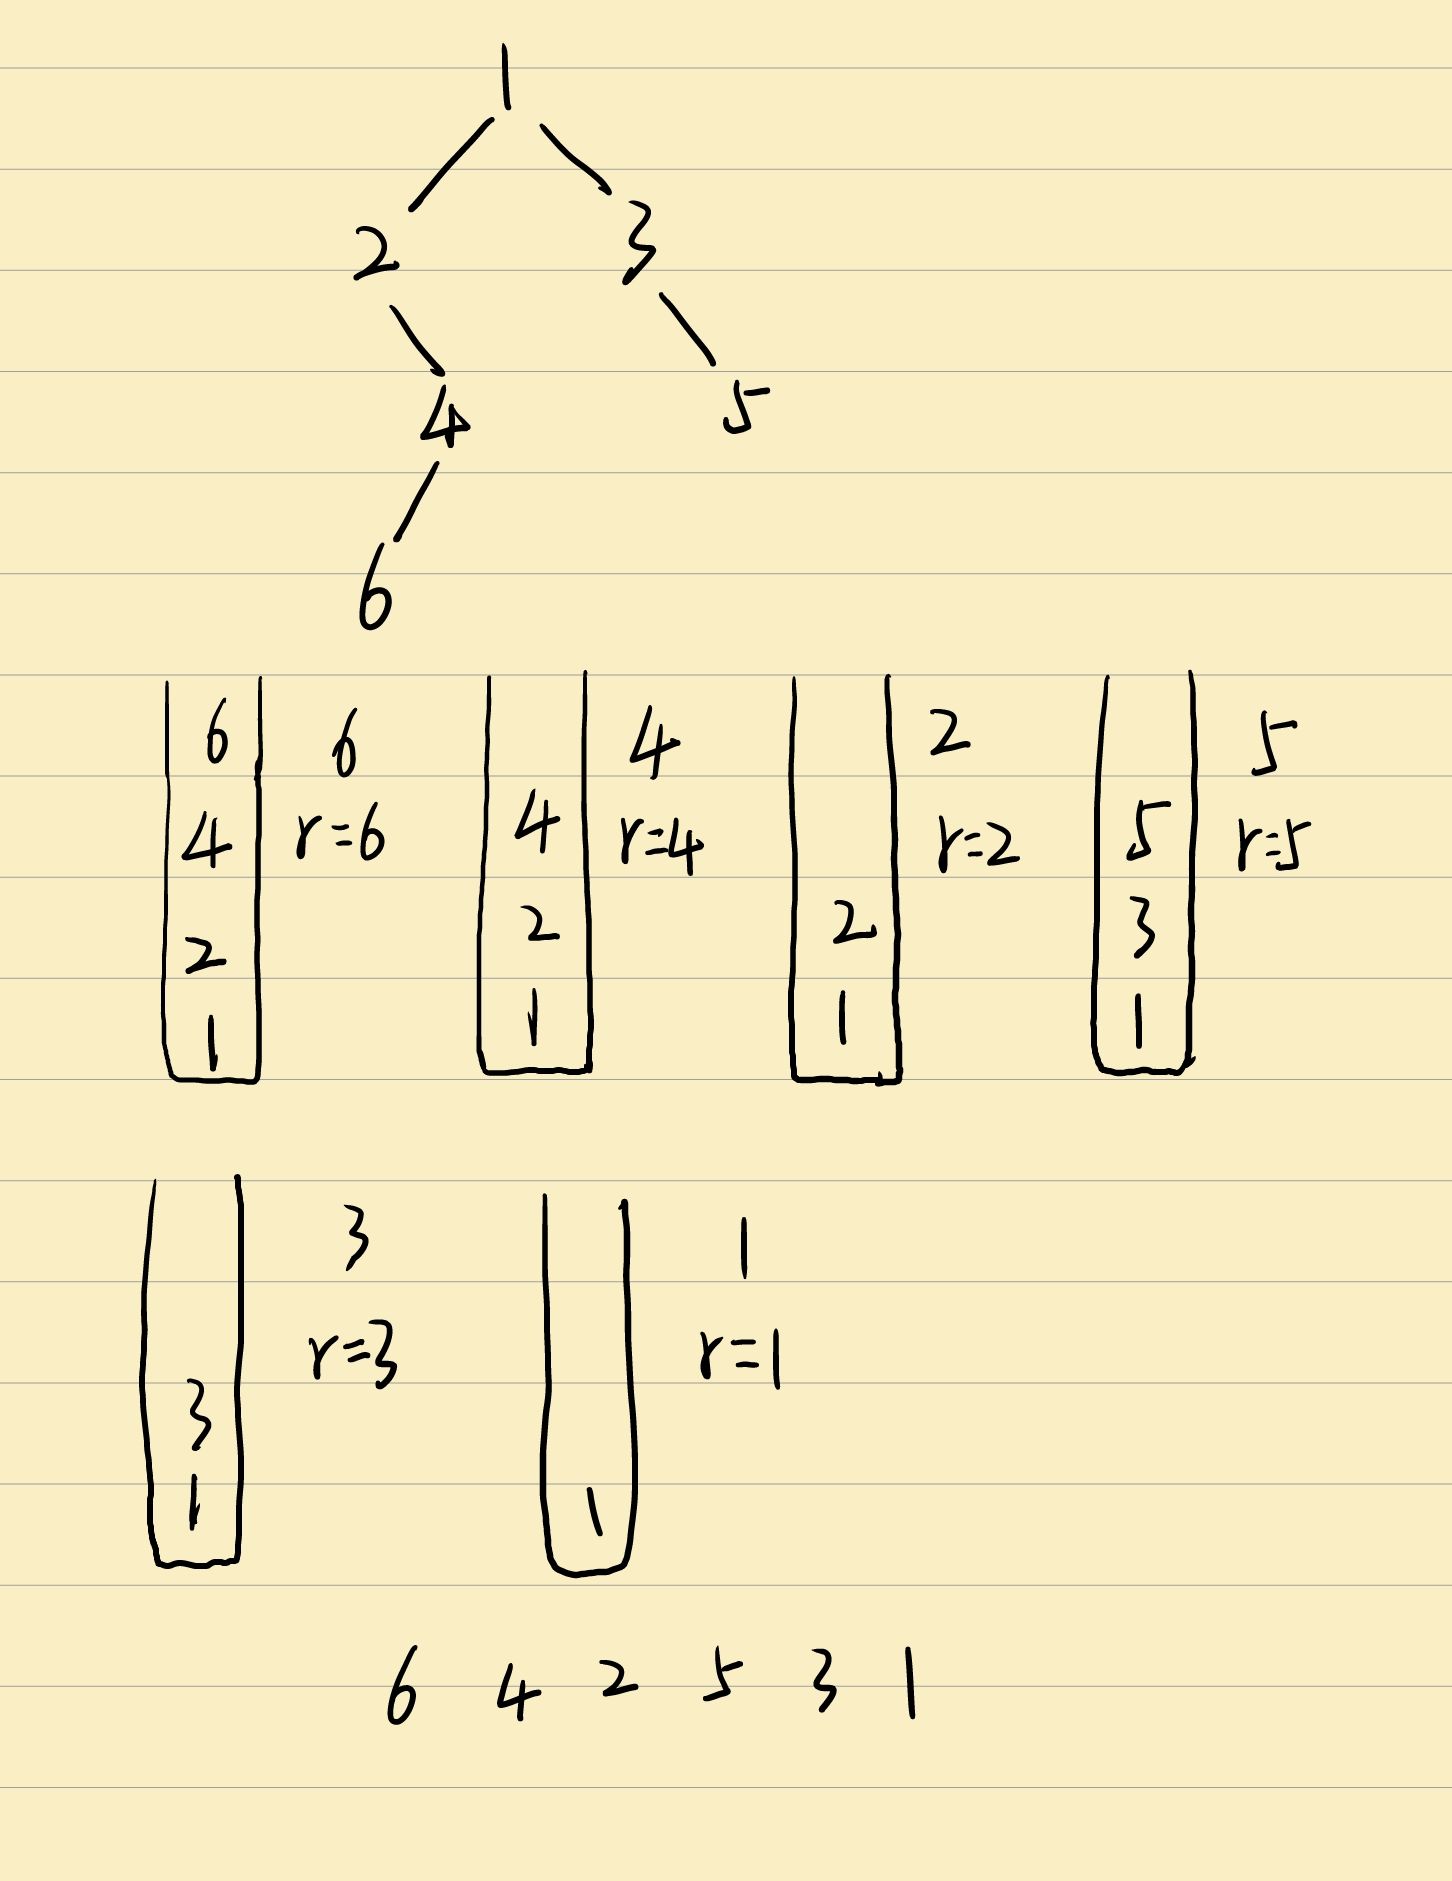 1
2 3
4 5
6
6 6 4 2 5
4 r=6 4 r=4 r=2 5 r=5
2 2 2 3
1 1 1 1
3 1
r=3 r=1
3
1 1
6 4 2 5 3 1